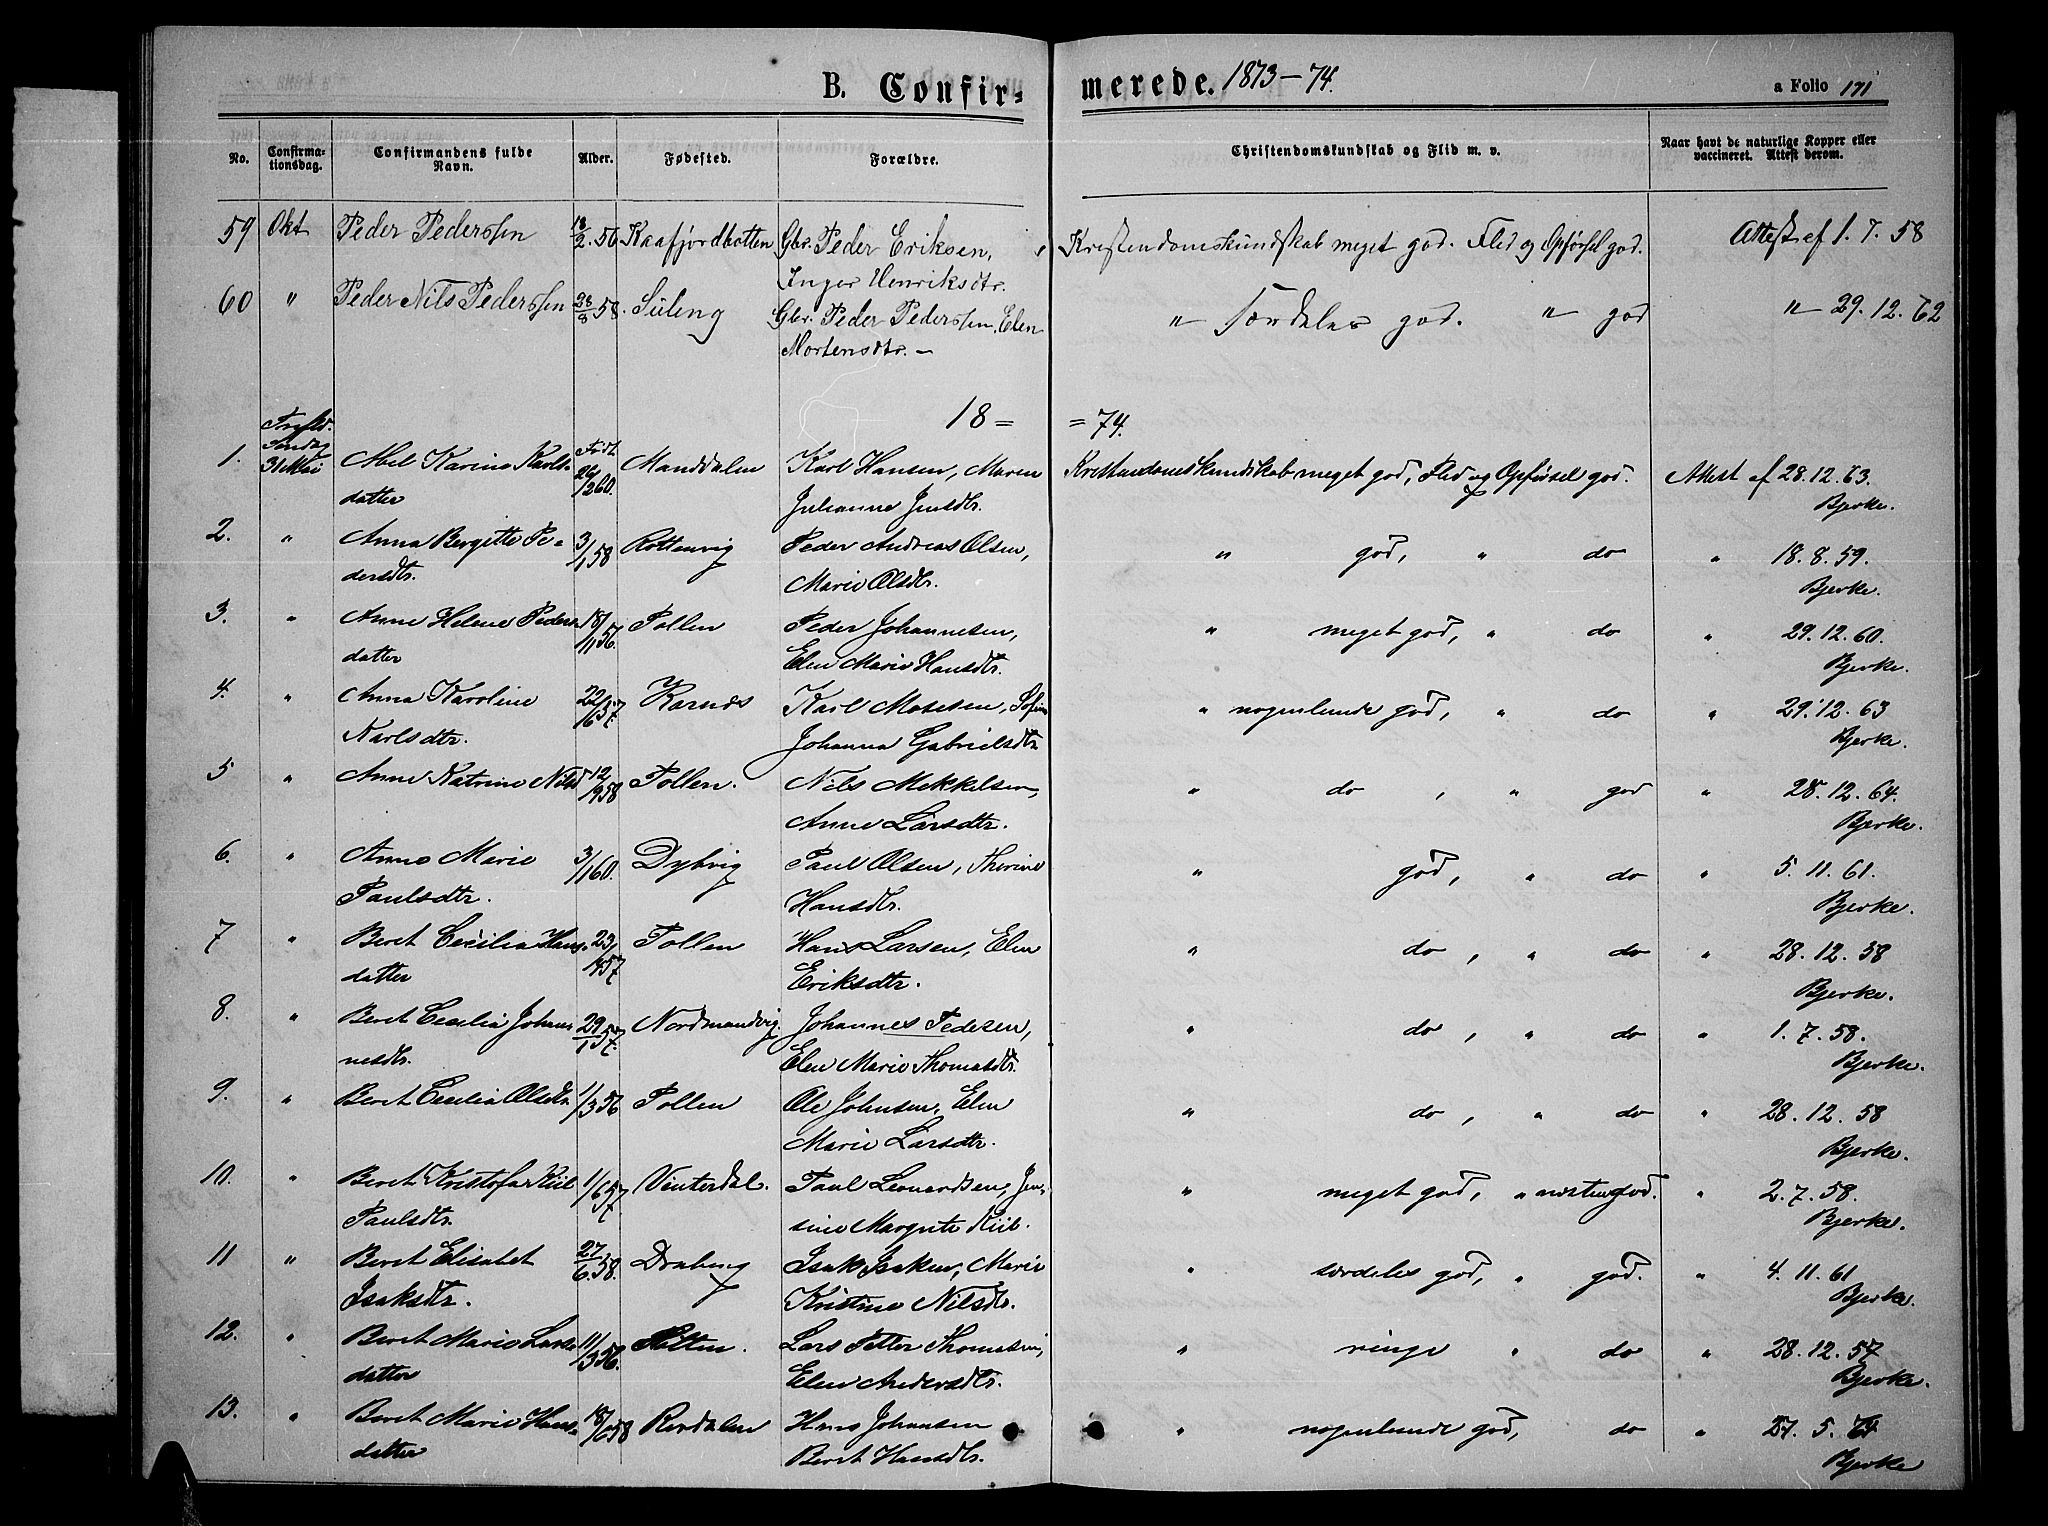 B. Confir= merede. 1873-74. a Folio 171
No. Confirma-tionsdag. Confirmandens fulde Navn. Alder. Fødested. Forældre. Christendomskundskab og Flid m. v. Naar havt de naturlige Kopper eller vaccineret. Attest derom.
59 Okt Peder Pederssen 18/2.56 Kaafjordbotten Gbr. Peder Eriksen, Kristendomskundskab meget god. Flid og Opførsel god. Attest af 1. 7. 58
Inger Henriksdtr.
60 " Peder Nils Pederssen 28/8 58. Süleng Gbr. Peder Pederssen, Elen " særdeles god. " god " 29. 12. 62
Mortensdtr. -
18= =74.
1. Søndag 31 Mai Abel Karine Karls- 26/12 60. Manddalen Karl Hansen, Maren Kristendomskundskab meget god, Flid og Opførsel god. Attest af 28.12.63.
datter Johanna Jensdtr. Bjerke.
2. " Anna Bergitte Pe- 3/1 58 Rottenvig Peder Andreas Olsen, " god, " do " 18. 8. 59.
dersdtr. Marie Olsdtr. Bjerke.
3. " Anne Helene Peders- 18/11 56. Pollen Peder Johannesen, " meget god, " do " 29. 12. 60.
datter Elen Marie Hansdtr. Bjerke.
4. " Anna Karoline 22/6 57 Karnes Karl Mosesen, " nogenlunde god, " do " 29. 12. 63
Karlsdtr. Johanna Gabrielsdtr. Bjerke.
5 " Anne Katrine Nilsd 12/9 58 Pollen. Nils Mekkelsen, " do, " god " 28. 12. 64.
Anne Larsdtr. Bjerke.
6. " Anne Marie 3/1 60. Dybvig Paul Olsen, Therine " god, " do " 5. 11. 61.
Paulsdtr. Hansdtr. Bjerke.
7 " Beret Cecilia Hans- 23/ 57 Pollen Hans Larsen, Elen " do, " do " 28. 12. 58
datter Eriksdtr. Bjerke.
8. " Beret Cecilia Johan- 29/1 57. Nordmandvig. Johannes Pedesen, " do, " do " 1. 7. 58.
nesdtr. Elen Marie Thomasdtr. Bjerke.
9. " Beret Cecilia Olsdtr 1/3 56 Pollen Ole Johnsen, Elen " do, " do " 28. 12. 58
Marie Larsdtr. Bjerke.
10. " Beret Kristofa Kiil 1/6 57 Vinterdal. Paul Leonardsen, Jen- " meget god, " god. " 2. 7. 58.
Paulsdtr. sine Margrete Kiil. Bjerke.
11 " Beret Elisabet 27/6. 58. Drabeng Isak Isaksen, Marie " særdeles god, " god. " 4. 11. 61
Isaksdtr. Kristine Nilsdtr. Bjerke.
12. " Beret Marie Lars- 11/3 56. Lars Petter Thomassen, " ringe " do " 28. 12. 57
datter Elen Andersdtr. Bjerke.
13. " Beret Marie Hans- 18/ 58 Rordalen Hans Johansen " nogenlunde god, do " 27. 5. 64
datter Beret Hansdtr. Bjerke